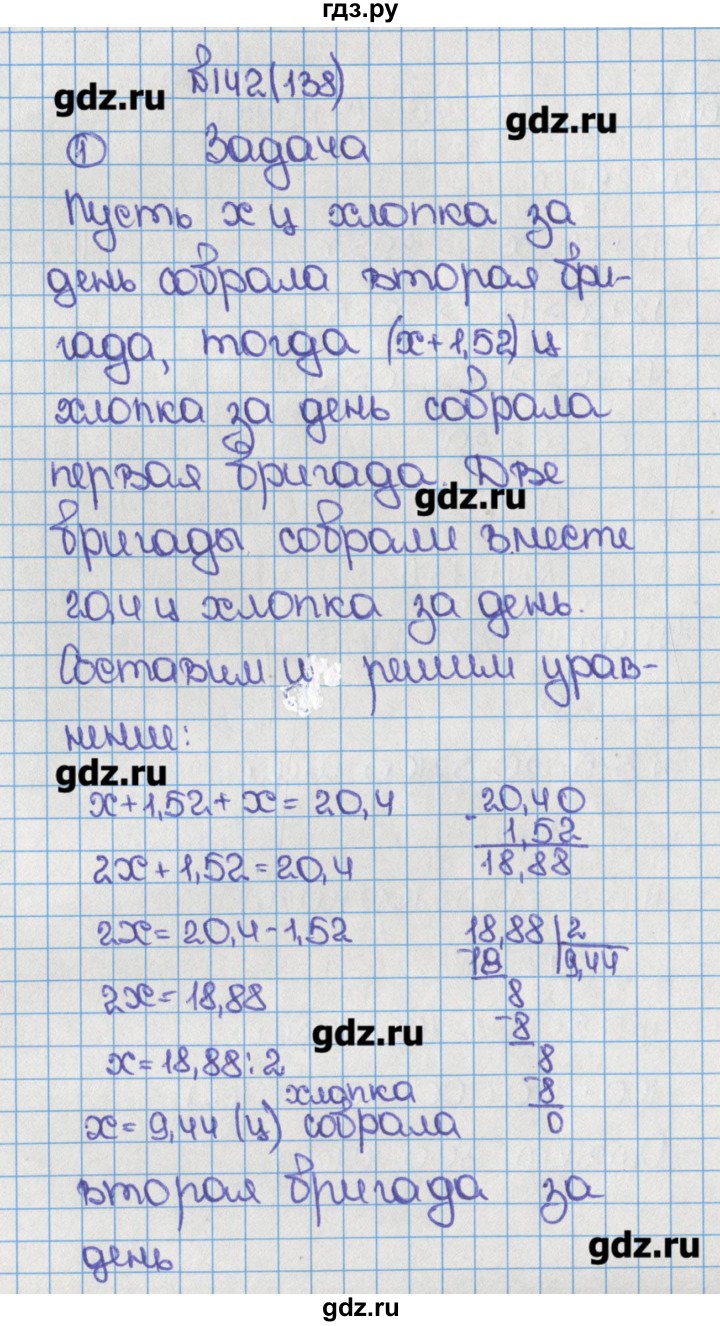 гдз.ру
№142(138)
gdz.ru
gdz.ru
1 Задача
Пусть x ц хлопка за
день собрала вторая бри-
гада, тогда (x+1,52) ц
хлопка за день собрала
первая бригада. Две
gdz.ru
бригады собрали вместе
20,4 ц хлопка за день.
Составим и решим урав-
нение:
gdz.ru
x+1,52+x=20,4
20,40
- 1,52
18,88
2x+1,52=20,4
2x=20,4-1,52
18,88 | 2
-18 | 9,44
8
-8
8
-8
0
2x=18,88
gdz.ru
x=18,88:2
x=9,44 (ц) хлопка собрала
вторая бригада за
gdz.ru
день
gdz.ru